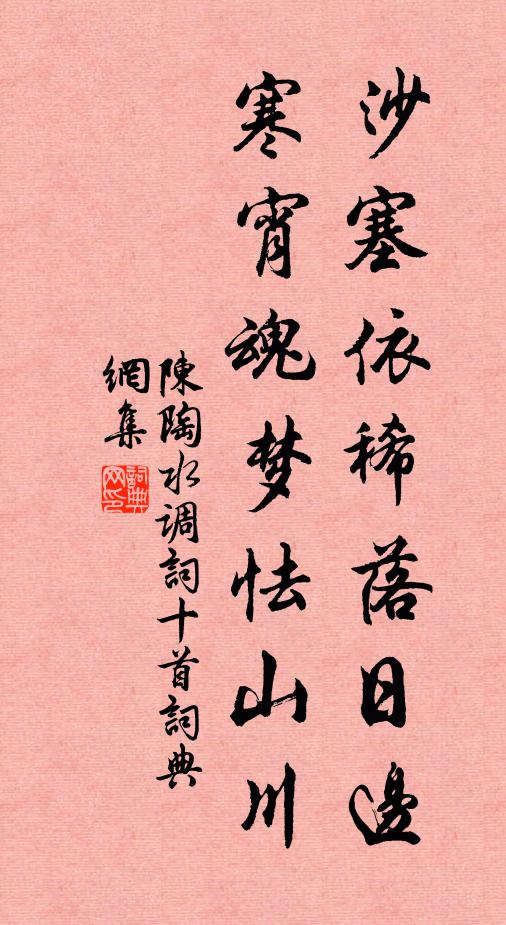 沙塞依稀落日邊
寒宵魂梦怯山川
陳陶水调詞十首詞典
網集
詞典
网印